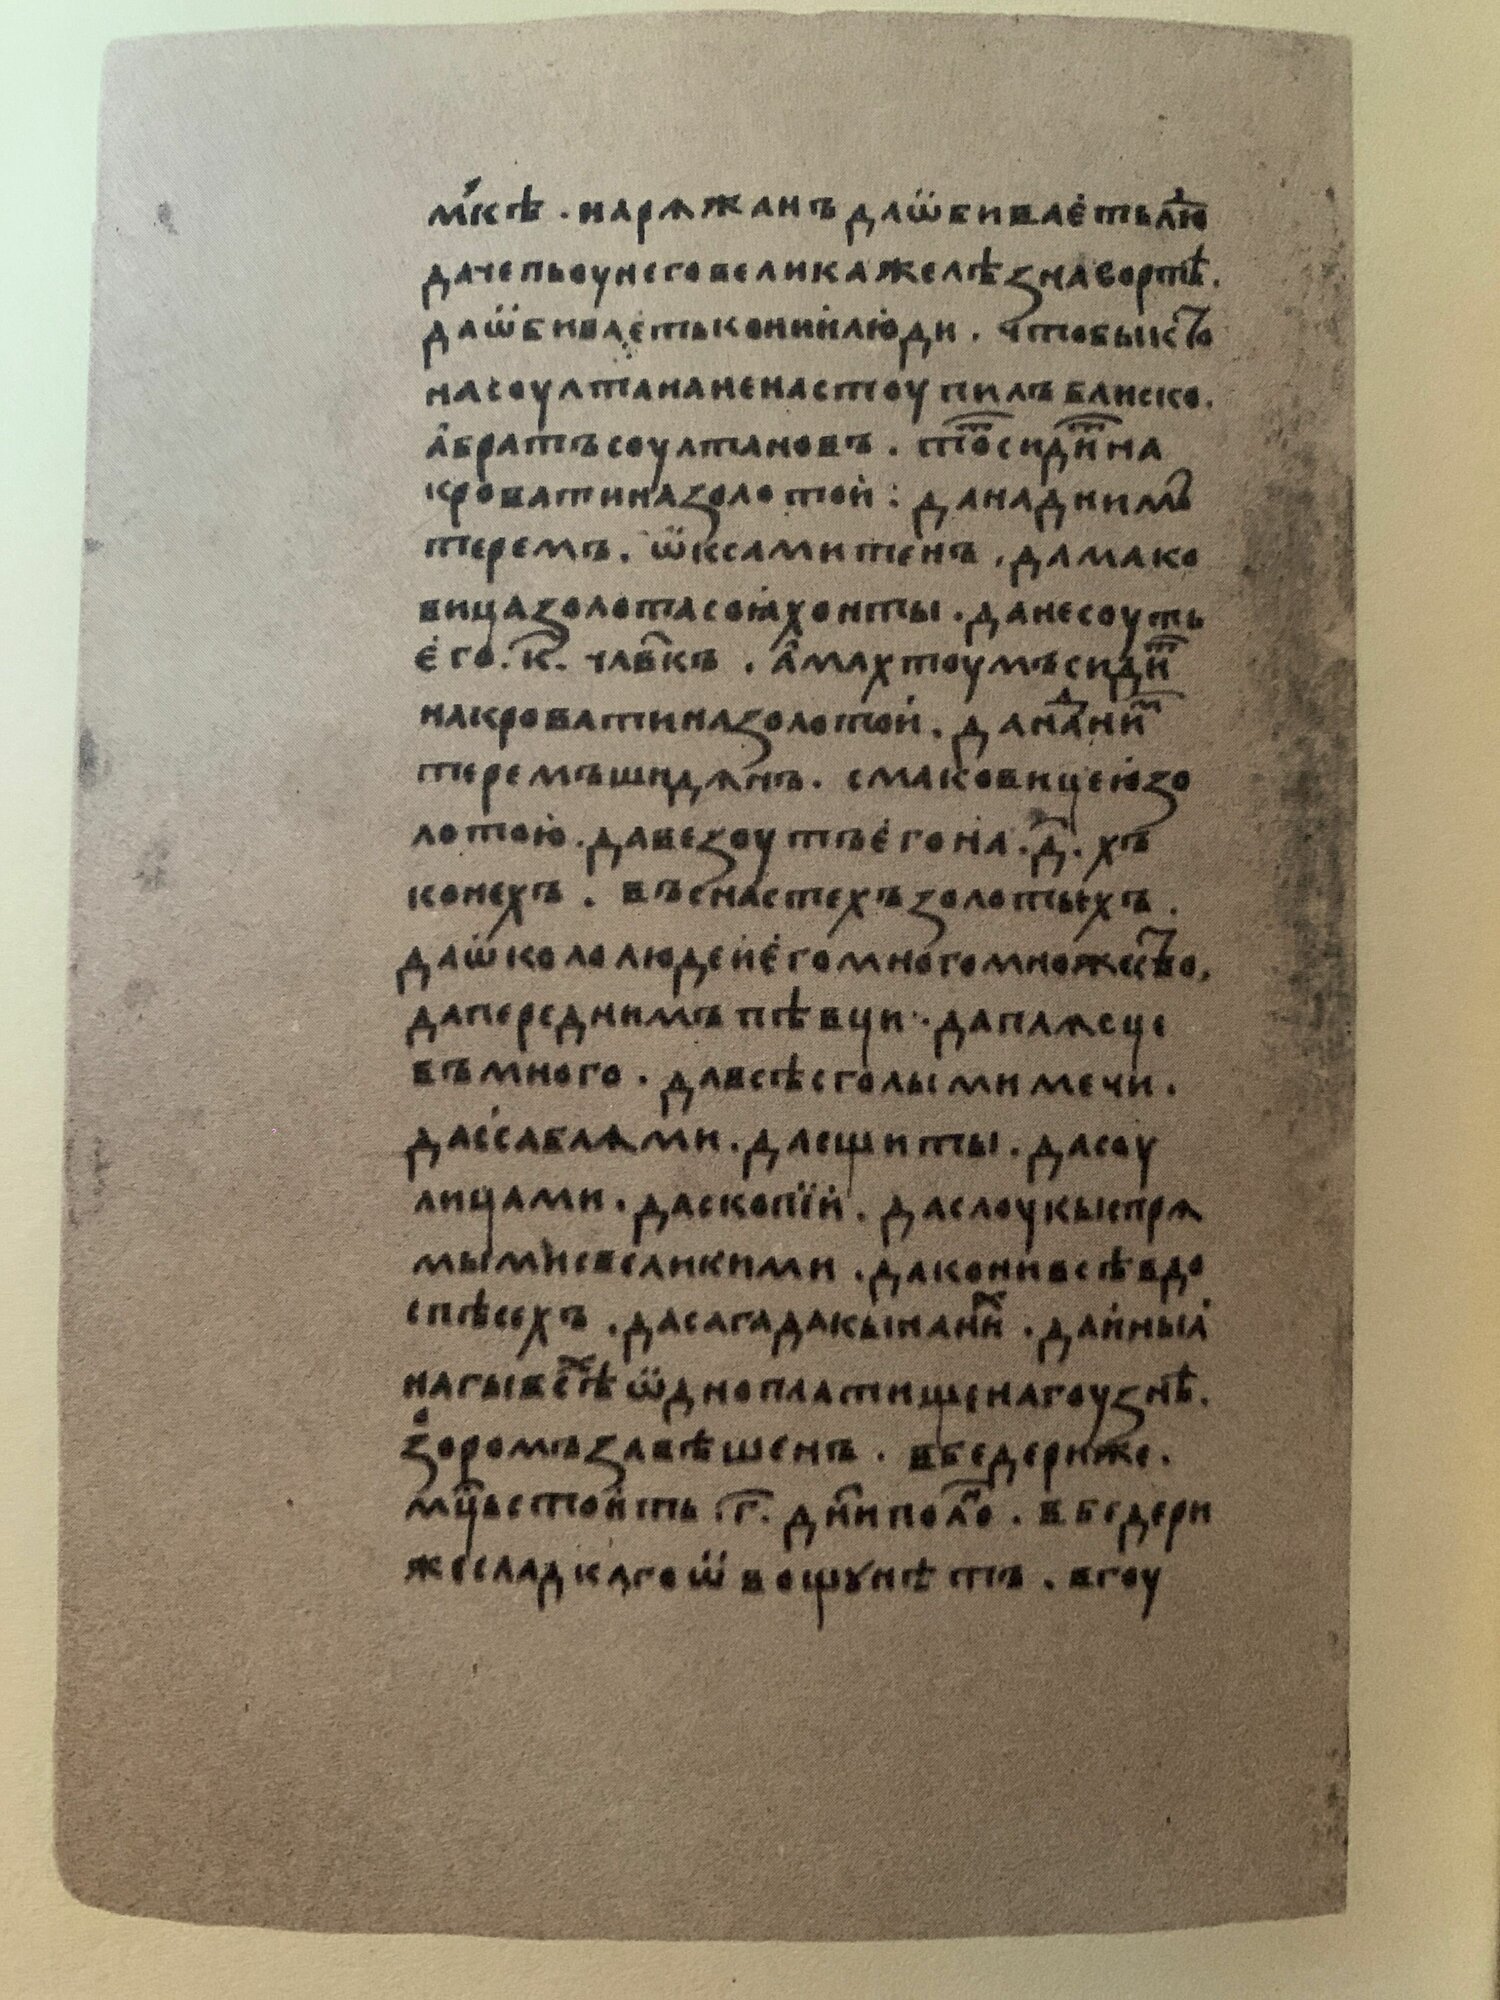 мкѣ . нарѧжанъ даѿбиваеть лю
да чепь оу него велика желѣзна во ртѣ .
да ѿбиваеть кони и люди . чтобы кто
на соултана не настоупилъ блиско .
а братъ соултановъ . тотъ сидитъ на
кровати на золотой : да над нимъ
теремъ . ѿксамитенъ , да мако
вица золота со ꙗхонты . да несоуть
его . к҃ . чл҃вкъ . а махтоумъ сидит
на кровати на золотой . да над ним
теремъ шидѧнъ . с маковицею зо
лотою . да везоутъ его на . д҃ . хъ
конехъ . въ снастехъ золотыхъ .
да ѿколо людей его много множество ,
да перед нимъ пѣвци . да плѧсце
въ много . да всѣ с голыми мечи .
да с саблѧми . да с щиты . да соу
лицами . да с копїи . да с лоукы с прѧ
мыми с великими . да кони всѣ в до
спѣсехъ . да сагадакы на них . да иныа
нагы всѣх ѿдно платище на гоузнѣ .
соромъ завѣшенъ . в бедери же .
мц҃ь стоить г҃ . дн҃и полно . в бедери
же сладкаго ѿвощꙋ нѣтъ . в гоу